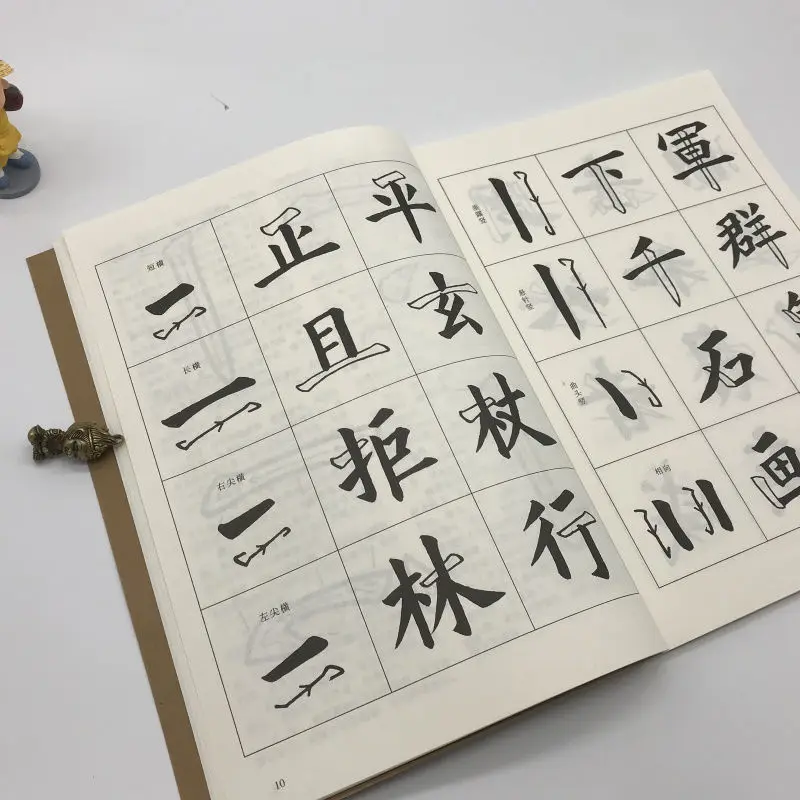 短横
正 平
长横
且 玄
右尖横
拒 杖
左尖横
林 行
10
垂露竖
下 軍
悬针竖
千 群
曲头竖
石
相向
画